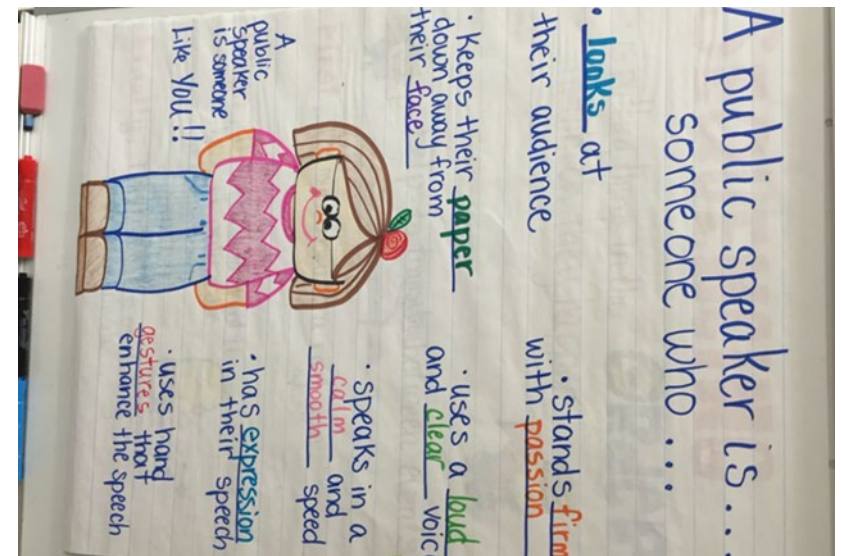 A public speaker is...
someone who ...
• looks at
their audience
• Keeps their paper
down away from
their face
A
public
speaker
is someone
Like YOU!!
• stands firm
with passion
• uses a loud
and clear voic
• speaks in a
calm and
smooth speed
• has expression
in their speech
• uses hand
gestures that
enhance the speech